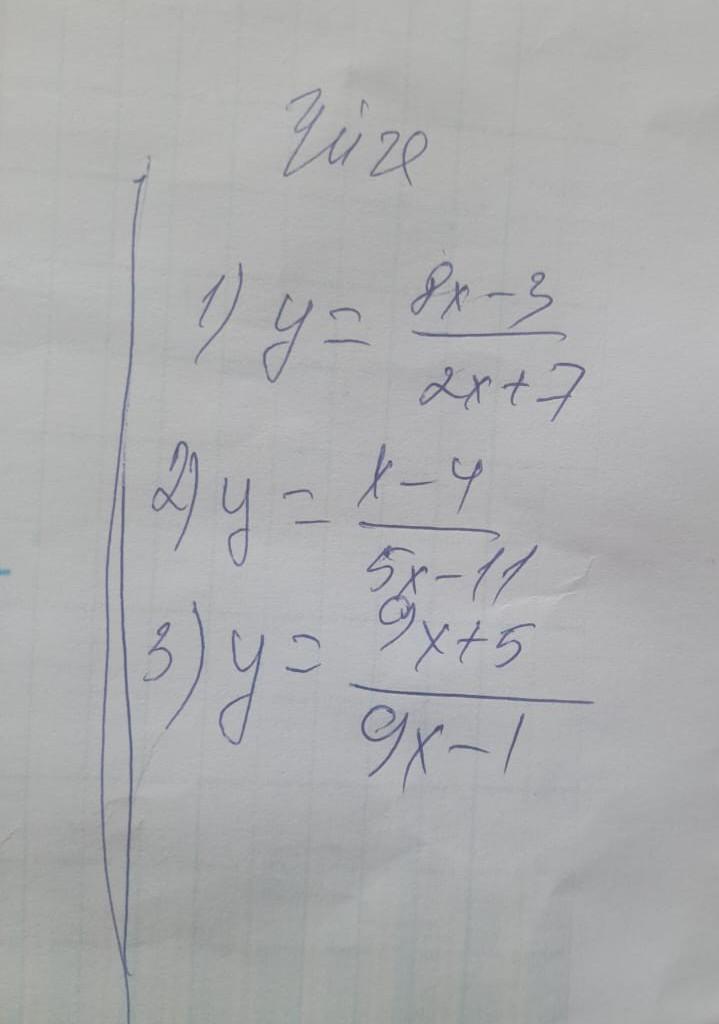 Үйге
1) y = \frac{8x-3}{2x+7}
2) y = \frac{x-4}{5x-11}
3) y = \frac{9x+5}{9x-1}